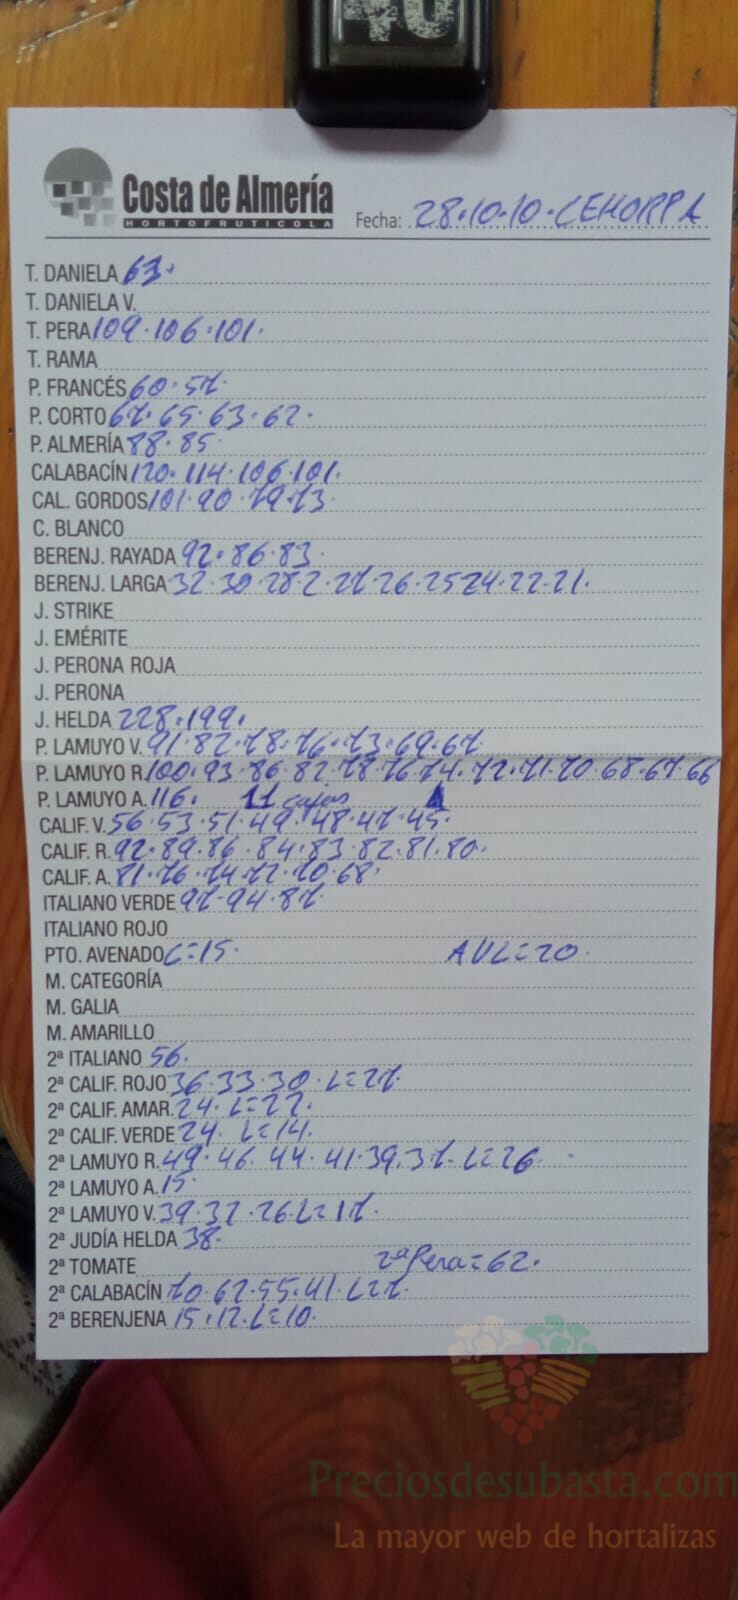 40
Costa de Almería
HORTOFRUTICOLA
Fecha: 28.10.10.CEHORPA
T. DANIELA 63.
T. DANIELA V.
T. PERA 109.106.101.
T. RAMA
P. FRANCÉS 60.57.
P. CORTO 67.65.63.62.
P. ALMERÍA 88.85.
CALABACÍN 120.114.106.101.
CAL. GORDOS 101.90.79.73
C. BLANCO
BERENJ. RAYADA 92.86.83.
BERENJ. LARGA 32.30.28.2.27.26.25.24.22.21.
J. STRIKE
J. EMÉRITE
J. PERONA ROJA
J. PERONA
J. HELDA 228.199.
P. LAMUYO V. 91.82.78.76.73.69.67.
P. LAMUYO R. 100.93.86.82.78.76.74.72.71.70.68.67.66
P. LAMUYO A. 116. 11 cajas
CALIF. V. 56.53.51.49.48.47.45.
CALIF. R. 92.89.86.84.83.82.81.80.
CALIF. A. 81.76.74.72.70.68.
ITALIANO VERDE 97.94.87.
ITALIANO ROJO
PTO. AVENADO L=15. AVL=20.
M. CATEGORÍA
M. GALIA
M. AMARILLO
2ª ITALIANO 56.
2ª CALIF. ROJO 36.33.30.L=27.
2ª CALIF. AMAR. 24.L=22.
2ª CALIF. VERDE 24.L=14.
2ª LAMUYO R. 49.46.44.41.39.37.L=26.
2ª LAMUYO A. 15.
2ª LAMUYO V. 39.32.26.L=17.
2ª JUDÍA HELDA 38.
2ª TOMATE 2ª Pera=62.
2ª CALABACÍN 70.62.55.41.L=7.
2ª BERENJENA 15.12.L=10.
Preciosdesubasta.com
La mayor web de hortalizas